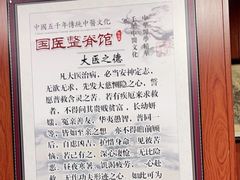 中國五千年傳統中醫文化
国医整脊馆
大医之德
凡大医治病，必当安神定志，
无欲无求，先发大慈恻隐之心，誓
愿普救含灵之苦。若有疾厄来求救
者，不得问其贵贱贫富，长幼妍
媸，怨亲善友，华夷愚智，普同一
等，皆如至亲之想，亦不得瞻前顾
后，自虑吉凶，护惜身命。见彼苦
恼，若己有之，深心凄怆，
夜、寒暑、饥渴疲劳，一心赴
救，无作功夫形迹之心，如此可为